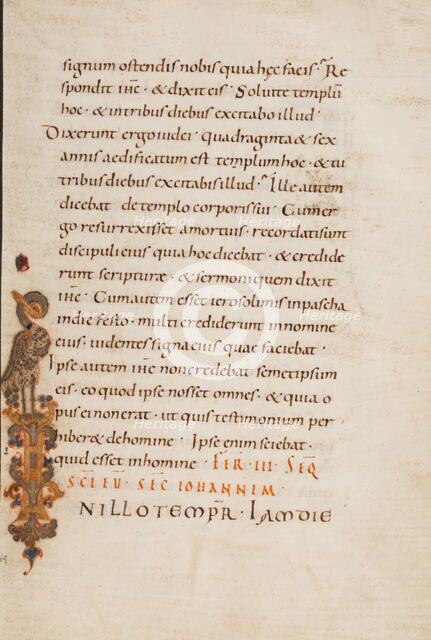 signum ostendis nobis quia hęc facis · Re
spondit ihc · & dixit eis · Soluite templū
hoc · & intribus diebus excitabo illud ·
Dixerunt ergo iudei · quadraginta & sex
annis aedificatum est templum hoc · & tu
tribus diebus excitabis illud · Ille autem
dicebat · de templo corporis sui · Cum er
go resurrexisset amortuis · recordati sunt
discipuli eius quia hoc dicebat · & credide
runt scripturæ · & sermoni quem dixit
ihc · Cum autem esset ierosolimis inpascha
indie festo · multi crediderunt innomine
eius · uidentes signa eius quae faciebat ·
Ipse autem ihc non credebat semetipsum
eis · eo quod ipse nosset omnes · & quia o
pus ei non erat · ut quis testimonium per
hiber& dehomine · Ipse enim sciebat ·
quid esset inhomine · FER · III · SEQ
SCI EU · SEC IOHANNEM ·
N ILLO TEMPR · IAM DIE
Heritage
Heritage
Heritage
Heritage
Heritage
Heritage
C